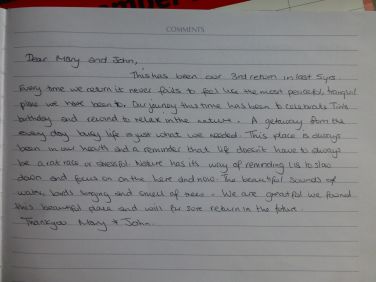 COMMENTS
Dear Mary and John,
This has been our 3rd return in last 5yrs.
Every time we return it never fails to feel like the most peaceful, tranquil
place we have been to. Our journey this time has been to celebrate Tim's
birthday and second to relax in the nature. A getaway from the
every day busy life is just what we needed. This place is always
been in our hearts and a reminder that life doesn't have to always
be a rat race or stressful. Nature has its way of reminding us to slow
down and focus on on the here and now. The beautiful sounds of
water, birds singing and smell of trees. We are greatful we found
this beautiful place and will for sure return in the future.
Thankyou Mary & John.